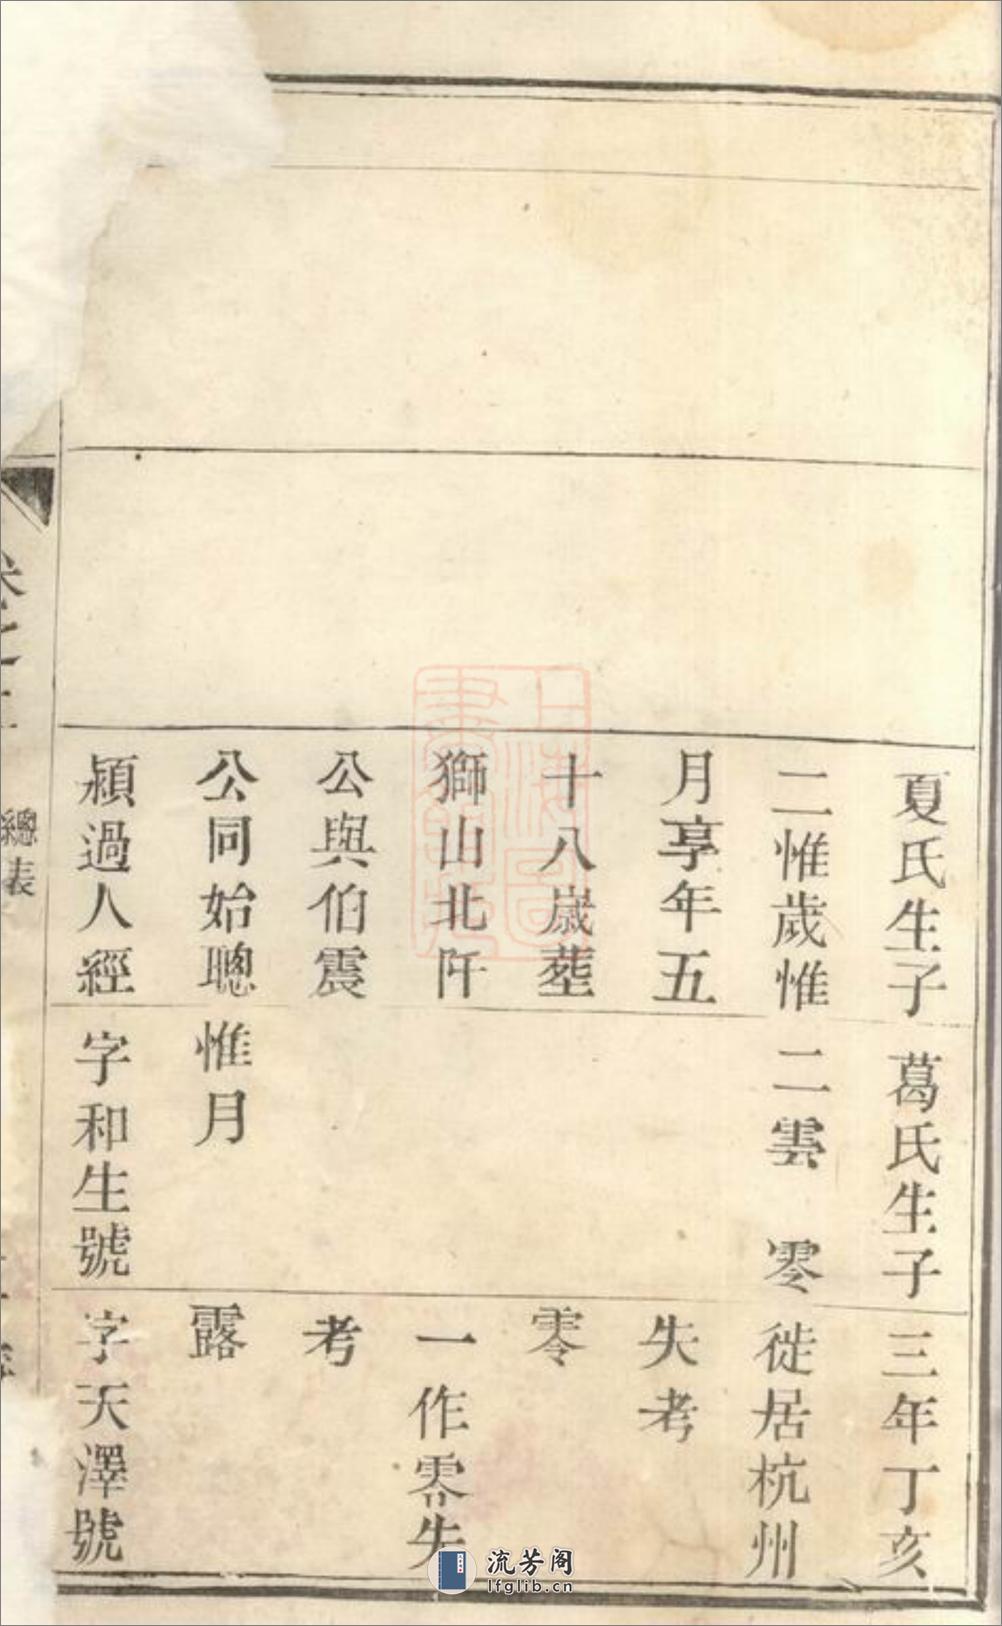 夏氏生子
二惟歲惟
月享年五
十八嵗塟
獅山北阡
公與伯震
公同始聰
穎過人經
葛氏生子
二雲 零
惟月
字和生號
三年丁亥
徙居杭州
失考
零
一作零失
考
露
字天澤號
總表
流芳阁
lfglib.cn